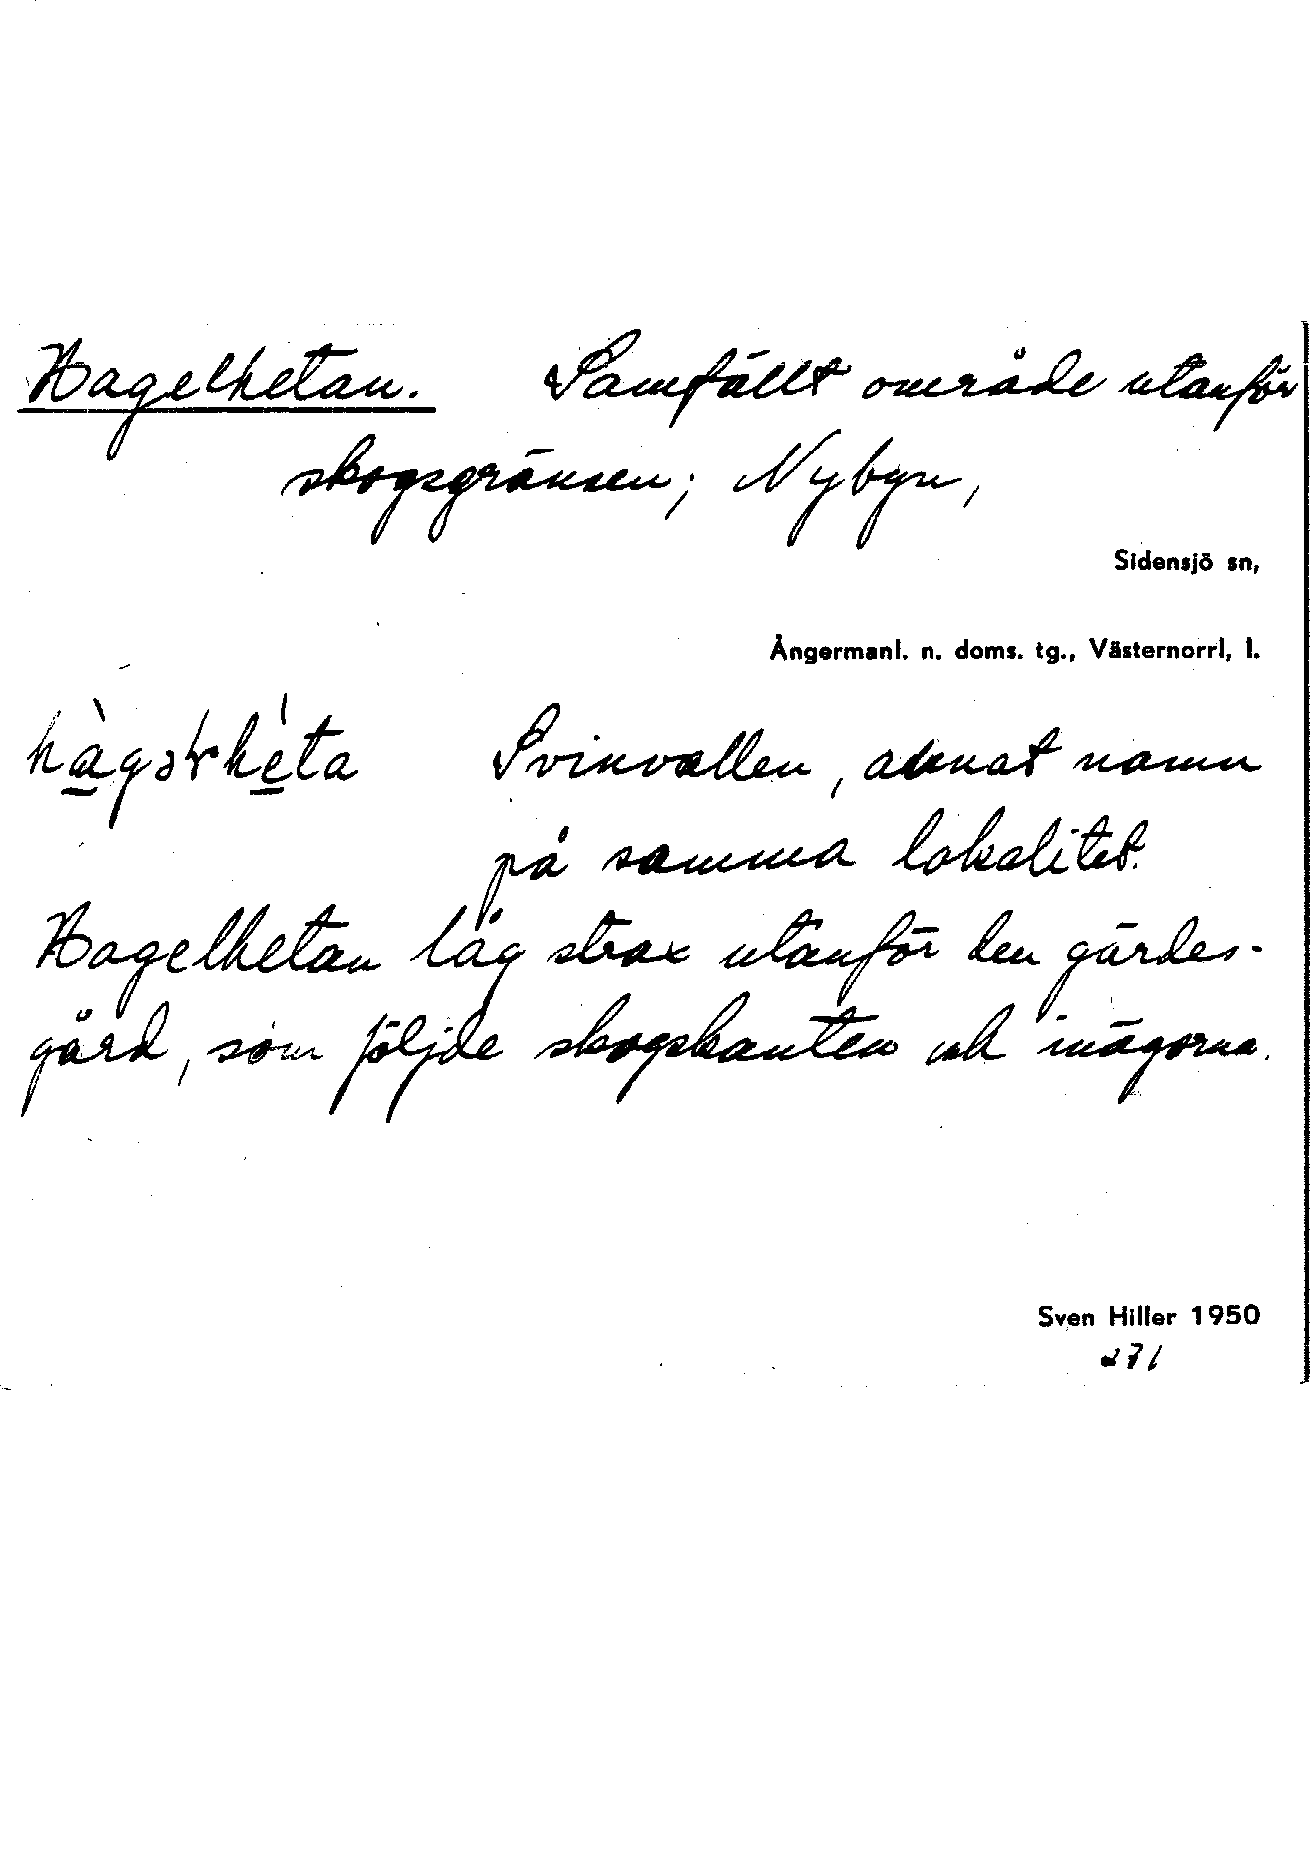 Hagelhetan. Samfällt område utanför
skogsgränsen; Nybyn,
Sidensjö sn,
Ångermanl. n. doms. tg., Västernorrl. l.
Svinvallen, annat namn
på samma lokalitet.
Hagelhetan låg strax utanför den gärdes-
gård, som följde skogskanten och inägorna.
Sven Hiller 1950
271